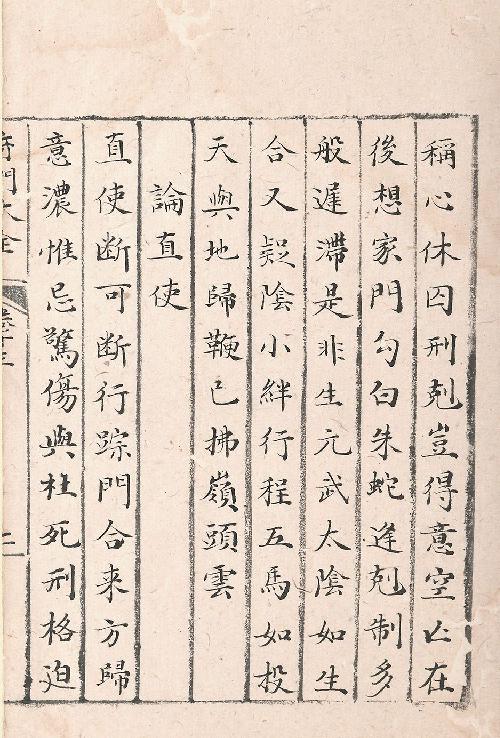 稱心休囚刑剋豈得意空亡在
後想家門勾白朱蛇逢剋制多
般遲滯是非生元武太陰如生
合又疑陰小絆行程五馬如投
天與地歸鞭已拂嶺頭雲
論直使
直使断可断行踪門合来方歸
意濃惟忌驚傷與杜死刑格迫
奇門大全